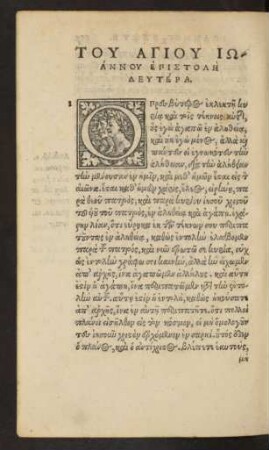 ΤΟΥ ΑΓΙΟΥ ΙΩ-
ΑΝΝΟΥ ΕΠΙΣΤΟΛΗ
ΔΕΥΤΕΡΑ.
πρεσβύτερος ἐκλεκτῇ κυ
ρίᾳ καὶ τοῖς τέκνοις αὐτῆς,
οὓς ἐγὼ ἀγαπῶ ἐν ἀληθείᾳ,
καὶ οὐκ ἐγὼ μόνος, ἀλλὰ καὶ
πάντες οἱ ἐγνωκότες τὴν
ἀλήθειαν, διὰ τὴν ἀλήθειαν
τὴν μένουσαν ἐν ἡμῖν, καὶ μεθ' ἡμῶν ἔσται εἰς τ
αἰῶνα. ἔσται μεθ' ἡμῶν χάρις, ἔλεος, εἰρήνη, πα
ρὰ θεοῦ πατρὸς, καὶ παρὰ κυρίου ἰησοῦ χριστοῦ
τοῦ υἱοῦ τοῦ πατρὸς, ἐν ἀληθείᾳ καὶ ἀγάπῃ. ἐχά
ρην λίαν, ὅτι εὕρηκα ἐκ τῶν τέκνων σου περιπα
τοῦντας ἐν ἀληθείᾳ, καθὼς ἐντολὴν ἐλάβομεν
παρὰ τοῦ πατρός. καὶ νῦν ἐρωτῶ σε κυρία, οὐχ
ὡς ἐντολὴν γράφων σοι καινὴν, ἀλλὰ ἣν εἴχομεν
ἀπ' ἀρχῆς, ἵνα ἀγαπῶμεν ἀλλήλους. καὶ αὕτη
ἐστὶν ἡ ἀγάπη, ἵνα περιπατῶμεν κατὰ τὰς ἐντο
λὰς αὐτοῦ. αὕτη ἐστὶν ἡ ἐντολὴ, καθὼς ἠκούσατε
ἀπ' ἀρχῆς, ἵνα ἐν αὐτῇ περιπατῆτε. ὅτι πολλοὶ
πλάνοι εἰσῆλθον εἰς τὸν κόσμον, οἱ μὴ ὁμολογοῦν
τες ἰησοῦν χριστὸν ἐρχόμενον ἐν σαρκί. οὗτός ἐστιν
ὁ πλάνος, καὶ ὁ ἀντίχριστος. βλέπετε ἑαυτοὺς,